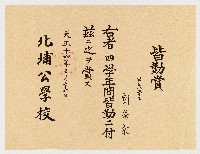 皆勤賞
右者四學年間皆勤ニ付
茲ニ之ヲ賞ス
大正十四年三月
北埔公學校